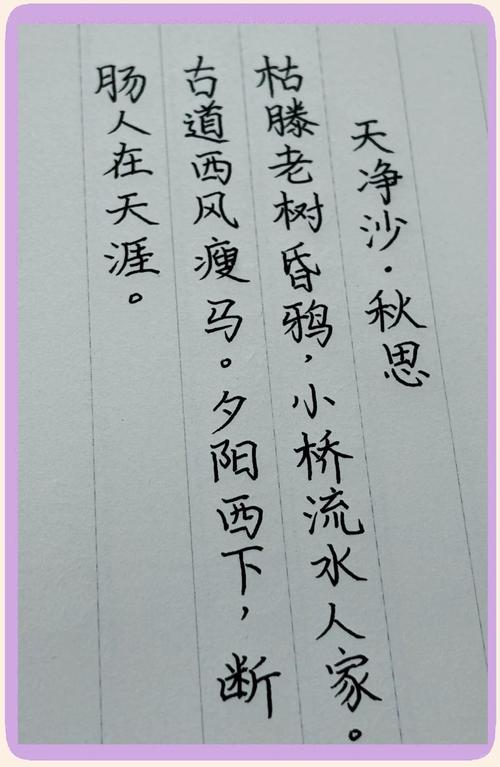 天净沙·秋思
枯滕老树昏鸦，小桥流水人家。
古道西风瘦马。夕阳西下，断
肠人在天涯。